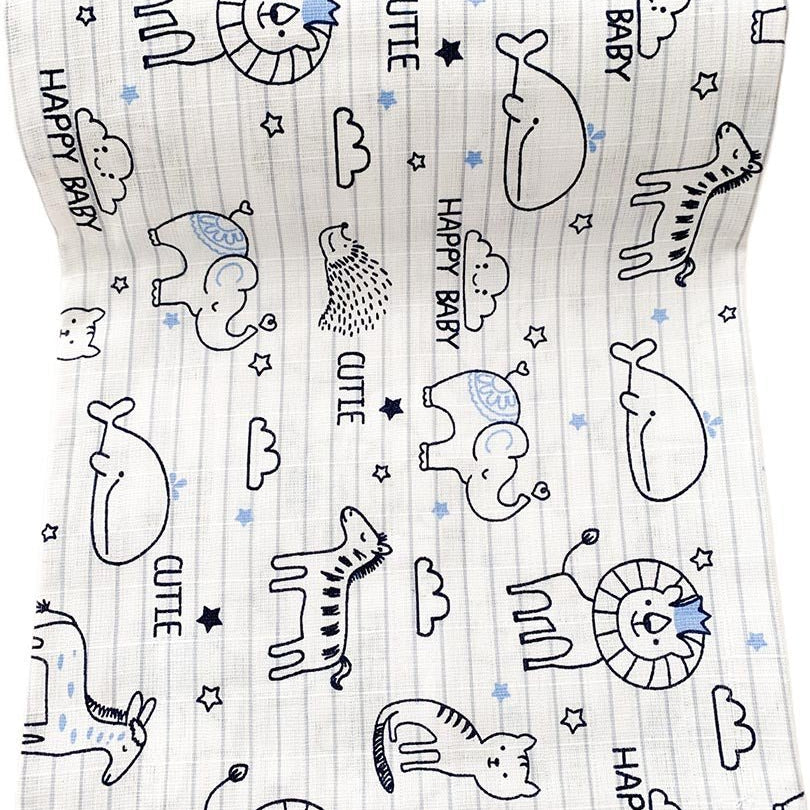 CUTIE
BABY
HAPPY BABY
HAPPY BABY
CUTIE
CUTIE
HAP